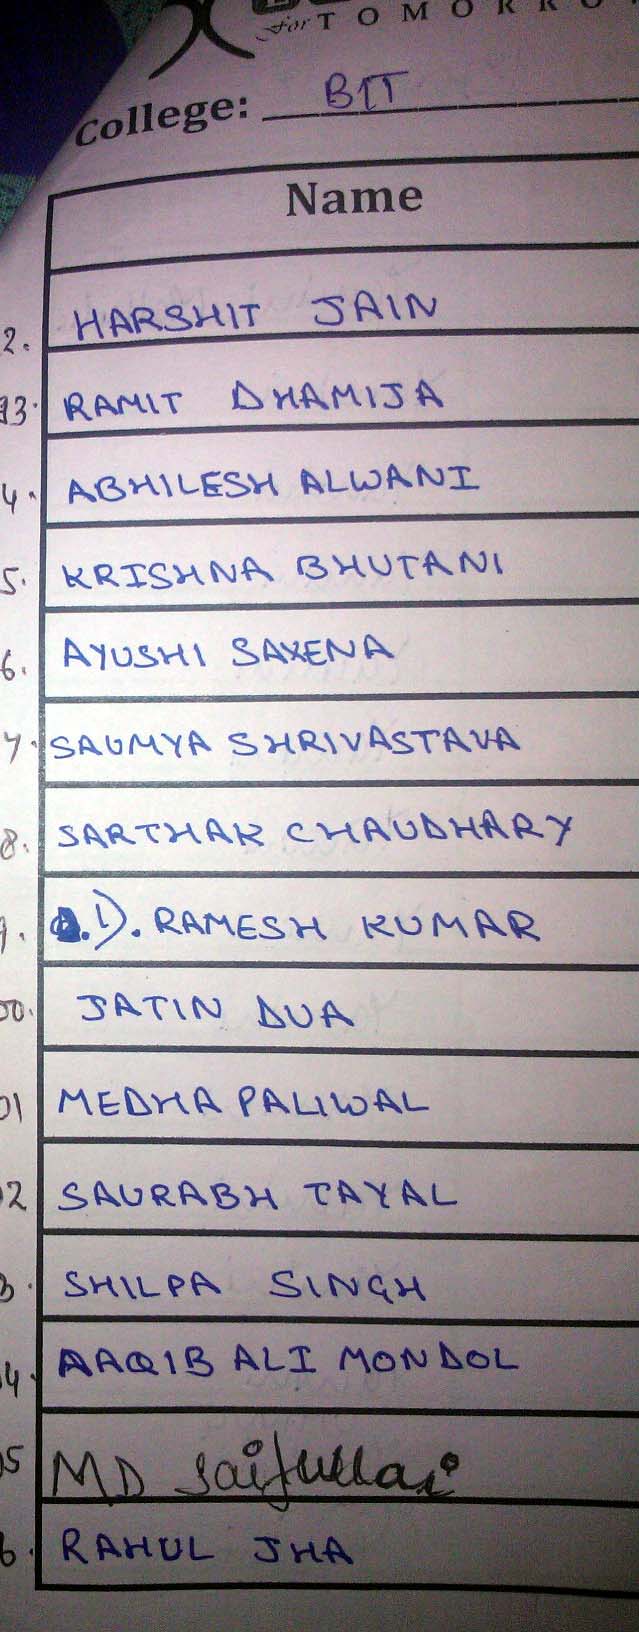 for TOMORRO
College: BIT
Name
2. HARSHIT JAIN
93. RAMIT DHAMIJA
4. ABHILESH ALWANI
5. KRISHNA BHUTANI
6. AYUSHI SAXENA
7. SAUMYA SHRIVASTAVA
8. SARTHAK CHAUDHARY
9. 1). RAMESH KUMAR
00. JATIN DUA
01 MEDHA PALIWAL
02 SAURABH TAYAL
3. SHILPA SINGH
4. AAQIB ALI MONDOL
05 MD
6. RAHUL JHA